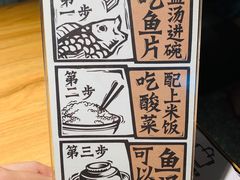 第一步
吃鱼片
盐汤进碗
第二步
吃酸菜
配上米饭
第三步
可以
鱼